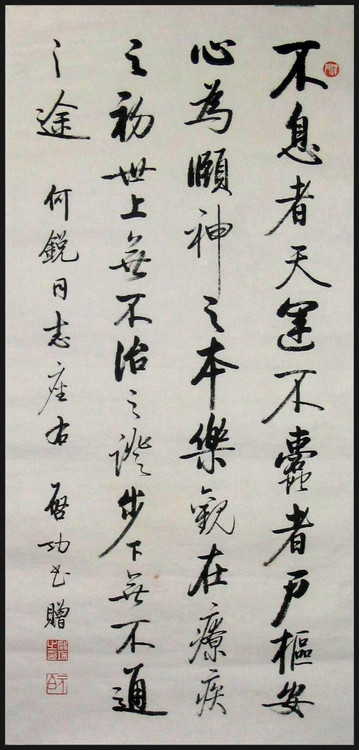 不息者天運不蠹者戶樞安
心為頤神之本樂觀在療疾
之初世上無不治之證步下無不通
之途 何銳同志座右 啟功書贈